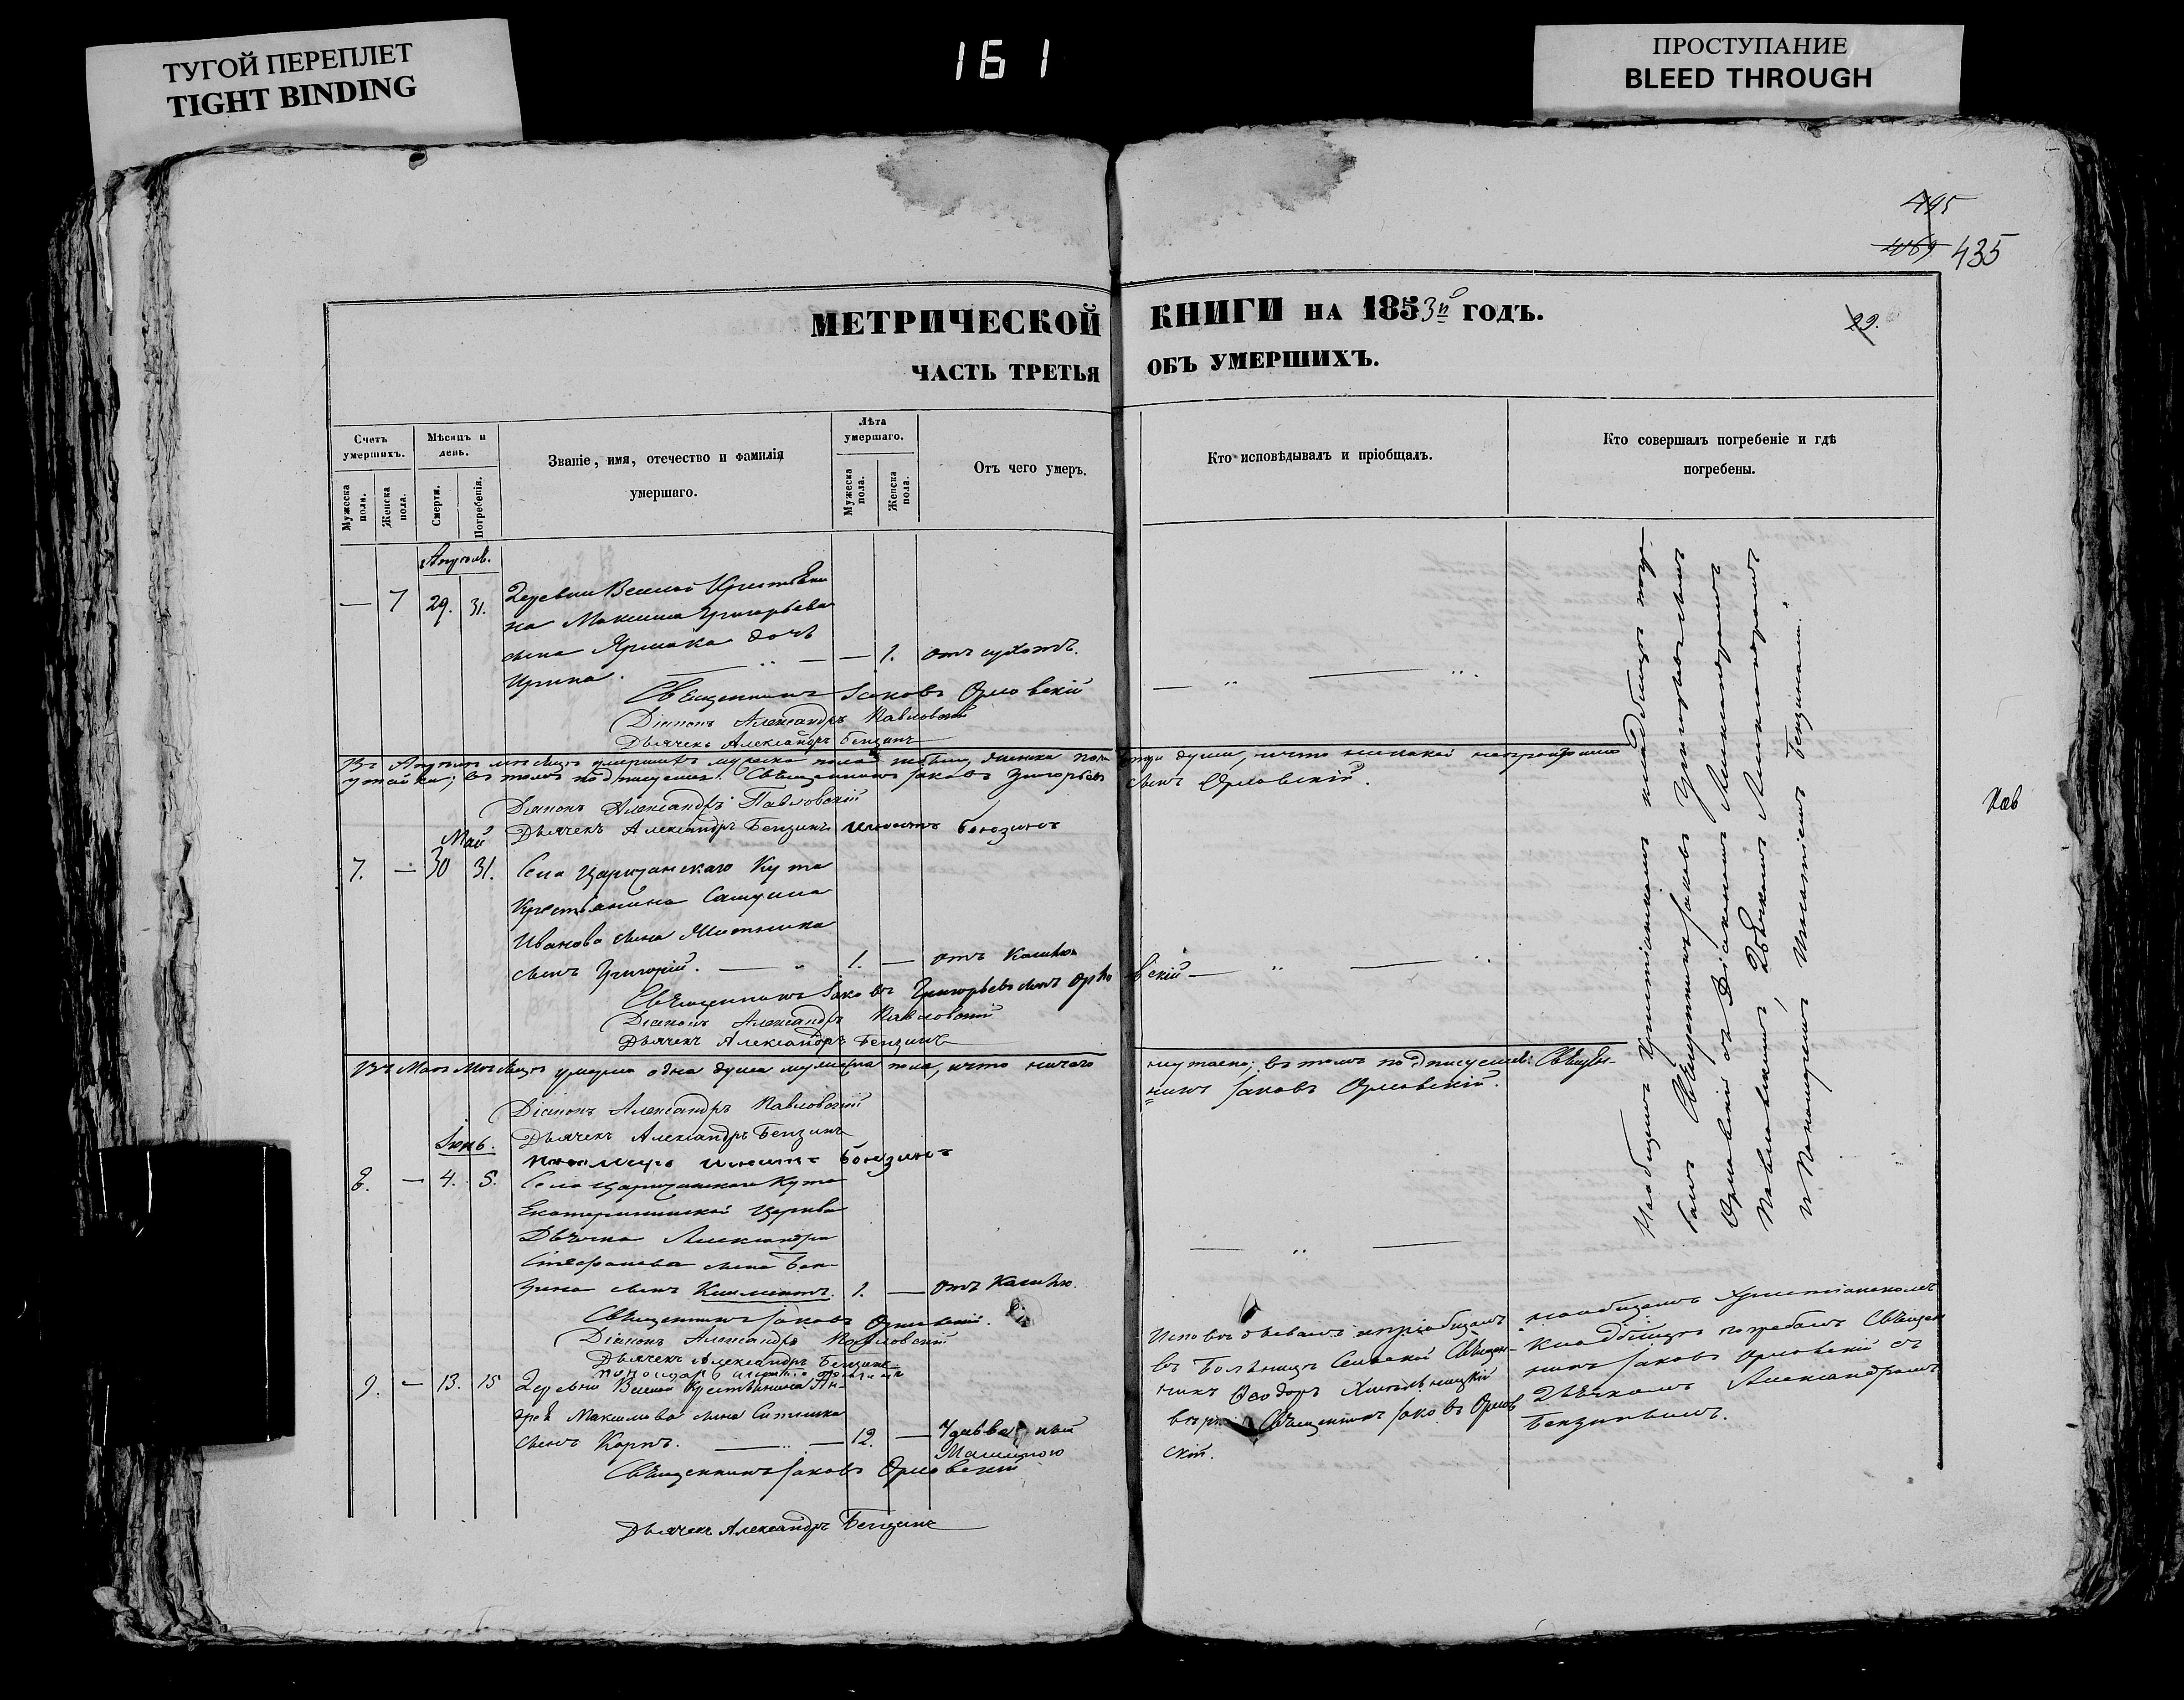 ТУГОЙ ПЕРЕПЛЕТ
TIGHT BINDING
161
ПРОСТУПАНИЕ
BLEED THROUGH
495
1069 435
29.
МЕТРИЧЕСКОЙ КНИГИ НА 1853й ГОДЪ.
ЧАСТЬ ТРЕТЬЯ ОБЪ УМЕРШИХЪ.
Счетъ умершихъ.
Мужеска пола.
Женска пола.
Мѣсяцъ и день.
Смерти.
Погребенія.
Званіе, имя, отечество и фамилія
умершаго.
Лѣта умершаго.
Мужеска пола.
Женска пола.
Отъ чего умеръ.
Кто исповѣдывалъ и пріобщалъ.
Кто совершалъ погребеніе и гдѣ
погребены.
Апрѣль.
— 7 29. 31. Деревни Веселой Крестьяни
на Максима Григорьева
сына Ярмака дочь
Ирина. — 1. отъ сухотъ.
Священникъ Іаковъ Орловскій
Діаконъ Александръ Павловскій
Дьячекъ Александръ Бензинъ
Въ Апрѣлѣ мѣсяцѣ умершихъ мужеска пола женска пола души, что никакой непроизошло
утайки; въ томъ подписуемся. Священникъ Іаковъ Григорьевъ сынъ Орловскій.
Діаконъ Александръ Павловскій
Дьячекъ Александръ Бензинъ
Май
7. — 30 31. Села Царичанскаго Кута
Крестьянина
Иванова сына
сынъ Григорій. — 1. — отъ Кашлю
Священникъ Іаковъ Григорьевъ сынъ Орловскій
Діаконъ Александръ Павловскій
Дьячекъ Александръ Бензинъ
Въ Маѣ Мѣсяцѣ умерла одна душа мужеска пола, что ничего неутаено; въ томъ подписуемся: Священ-
никъ Іаковъ Орловскій.
Діаконъ Александръ Павловскій
Дьячекъ Александръ Бензинъ
Іюнь.
8. — 4. 5. Села Царичанскаго Кута
Екатерининской Церкви
Дьячка Александра
Стефанова сына Бен-
зина сынъ Климентъ. 1. — отъ Кашлю.
Священникъ Іаковъ Орловскій.
Діаконъ Александръ Павловскій
Дьячекъ Александръ Бензинъ
9. — 13. 15 Деревни Веселой Крестьянина Ан-
дрея Максимова сына
сынъ Карпъ. — 12. —
Машиною
Священникъ Іаковъ Орловскій
Дьячекъ Александръ Бензинъ
Исповѣдывалъ ипріобщалъ
въ Больницѣ Священ-
никъ Ѳеодоръ
Священникъ Іаковъ Орлов
скій.
наобщемъ Христіанскомъ
Кладбищѣ погребалъ Священ
никъ Іаковъ Орловскій съ
Дьячкомъ Александромъ
Бензинымъ.
Наобщемъ Христіанскомъ кладбищѣ погре-
балъ Священникъ Іаковъ Григорьевъ сынъ
Орловскій съ Діакономъ Александромъ
Павловскимъ, Дьячкомъ Александромъ
и Пономаремъ Бензинами.